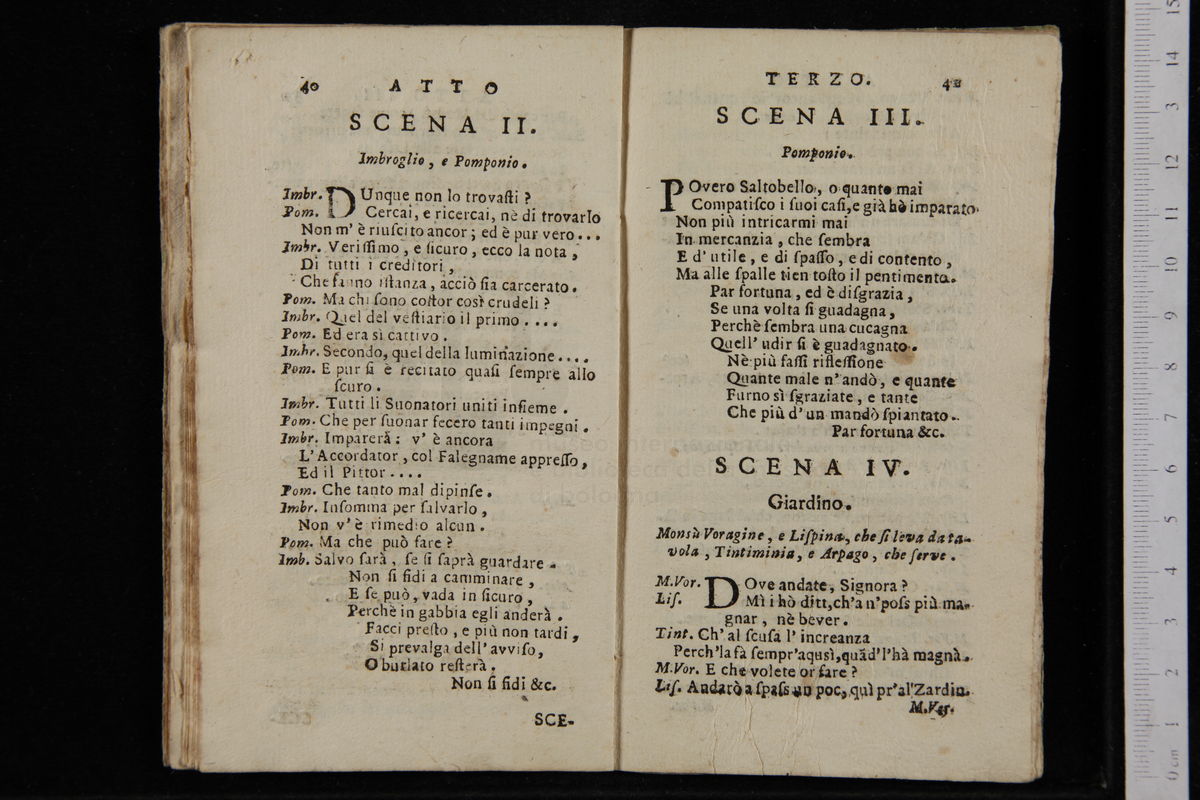 40 ATTO
SCENA II.
Imbroglio, e Pomponio.
Imbr. DUnque non lo trovaſti ?
Pom. Cercai, e ricercai, nè di trovarlo
Non m' è riuſcito ancor ; ed è pur vero...
Imbr. Veriſſimo, e ſicuro, ecco la nota,
Di tutti i creditori,
Che fanno iſtanza, acciò ſia carcerato.
Pom. Ma chi ſono coſtor così crudeli ?
Imbr. Quel del veſtiario il primo ....
Pom. Ed era sì cattivo.
Imbr. Secondo, quel della luminazione....
Pom. E pur ſi è recitato quaſi ſempre allo
ſcuro.
Imbr. Tutti li Suonatori uniti inſieme.
Pom. Che per ſuonar fecero tanti impegni.
Imbr. Imparerà : v' è ancora
L'Accordator, col Falegname appreſſo,
Ed il Pittor....
Pom. Che tanto mal dipinſe.
Imbr. Inſomma per ſalvarlo,
Non v' è rimedio alcun.
Pom. Ma che può fare ?
Imb. Salvo ſarà, ſe ſi ſaprà guardare.
Non ſi fidi a camminare,
E ſe può, vada in ſicuro,
Perchè in gabbia egli anderà.
Facci preſto, e più non tardi,
Si prevalga dell' avviſo,
O burlato reſterà.
Non ſi fidi &c.
SCE-
TERZO.
SCENA III.
Pomponio.
POvero Saltobello, o quanto mai
Compatiſco i ſuoi caſi, e già hò imparato
Non più intricarmi mai
In mercanzia, che ſembra
E d' utile, e di ſpaſſo, e di contento,
Ma alle ſpalle tien toſto il pentimento.
Par fortuna, ed è diſgrazia,
Se una volta ſi guadagna,
Perchè ſembra una cucagna
Quell' udir ſi è guadagnato.
Nè più faſſi rifleſſione
Quante male n' andò, e quante
Furno sì ſgraziate, e tante
Che più d' un mandò ſpiantato.
Par fortuna &c.
SCENA IV.
Giardino.
Monsù Voragine, e Liſpina, che ſi leva da ta-
vola, Tintiminia, e Arpago, che ſerve.
M.Vor. DOve andate, Signora ?
Liſ. Mì i hò ditt, ch'a n'poſs più ma-
gnar, nè bever.
Tint. Ch' al ſcuſa l' increanza
Perch'la fà ſempr'aqusì, quãd'l'hà magnà.
M.Vor. E che volete or fare ?
Liſ. Andarò a ſpaſs un poc, quì pr'al'Zardin.
M.Vor.